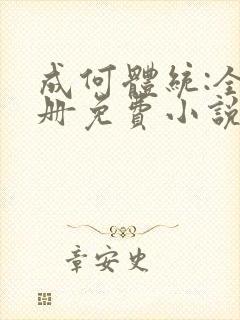 成何體統:全
册免費小說
章安史